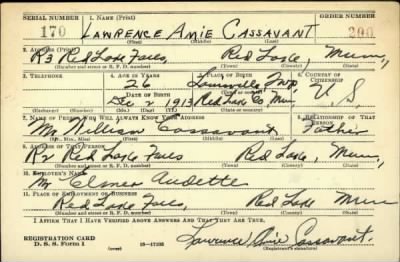 SERIAL NUMBER 1. NAME (Print) ORDER NUMBER
170 LAWRENCE AMIE CASSAVANT 200
(First) (Middle) (Last)
2. ADDRESS (Print)
R3 Red Lake Falls, Red Lake, Minn,
(Number and street or R. F. D. number) (Town) (County) (State)
3. TELEPHONE 4. AGE IN YEARS 5. PLACE OF BIRTH 6. COUNTRY OF CITIZENSHIP
26 Louisville Twp.
DATE OF BIRTH
Dec 2 1913 Red Lake Co Minn U. S.
(Exchange) (Number) (Mo.) (Day) (Yr.) (State or country)
7. NAME OF PERSON WHO WILL ALWAYS KNOW YOUR ADDRESS 8. RELATIONSHIP OF THAT PERSON
Mr. William Cassavant Father
(Mr., Mrs., Miss) (First) (Middle) (Last)
9. ADDRESS OF THAT PERSON
R2 Red Lake Falls Red Lake, Minn,
(Number and street or R. F. D. number) (Town) (County) (State)
10. EMPLOYER'S NAME
Mr Elmer Audette
11. PLACE OF EMPLOYMENT OR BUSINESS
Red Lake Falls Red Lake Minn
(Number and street or R. F. D. number) (Town) (County) (State)
I AFFIRM THAT I HAVE VERIFIED ABOVE ANSWERS AND THAT THEY ARE TRUE.
REGISTRATION CARD
D. S. S. Form 1 16-17105 Lawrence Amie Cassavant.
(Registrant's signature)